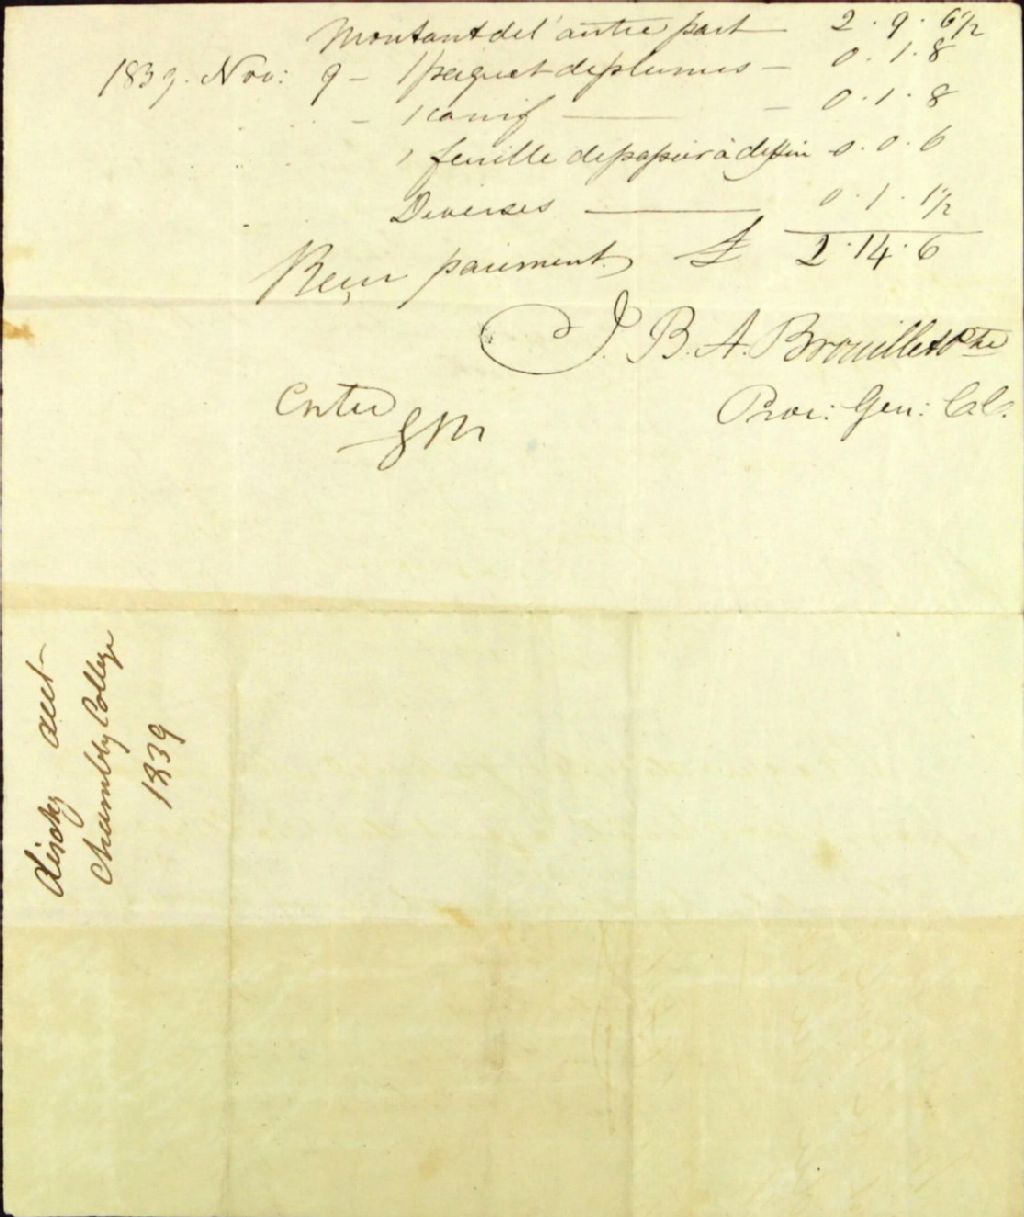 Montant de l'autre part — 2 . 9 . 6 1/2
1839. Nov: 9 — 1 paquet de plumes — 0 . 1 . 8
— 1 canif — — 0 . 1 . 8
1 feuille de papier à dessin 0 . 0 . 6
Diverses — 0 . 1 . 1 1/2
Reçu paiement £ 2 . 14 . 6
J. B. A. Brouillet Ptre
Proc: Gen: Col.
Entd
Dischg acct
Chambly College
1839